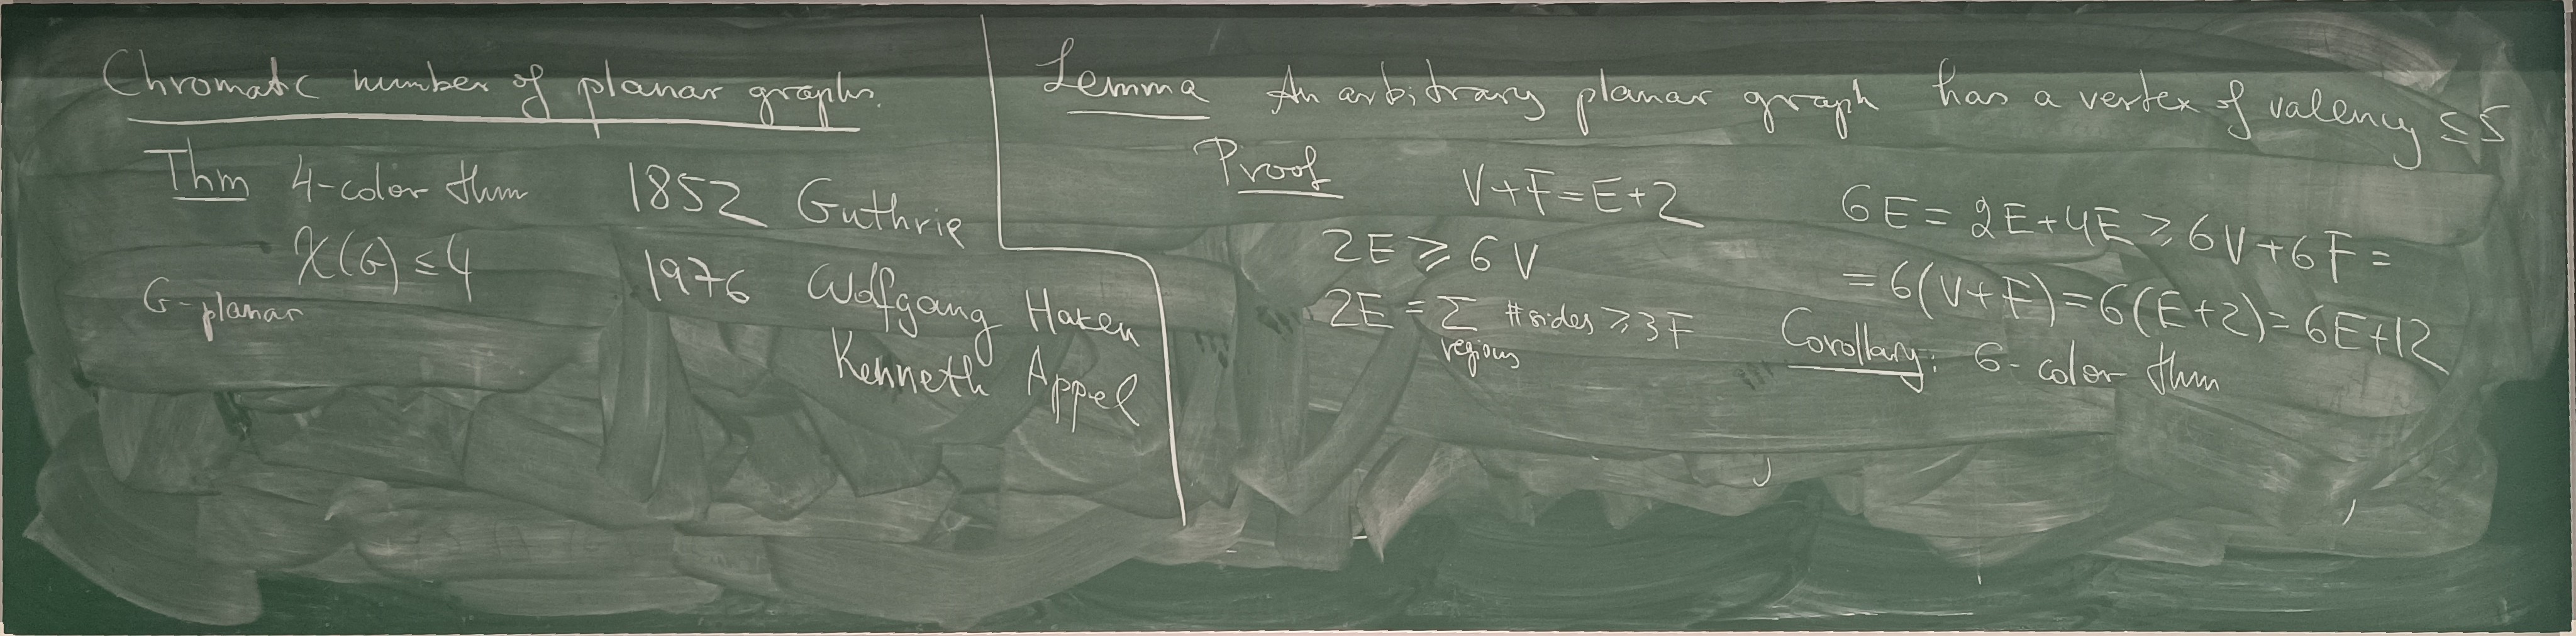 Chromatic number of planar graphs.
Thm 4-color thm 1852 Guthrie
χ(G) ≤ 4
G-planar
1976 Wolfgang Haken
Kenneth Appel
Lemma An arbitrary planar graph has a vertex of valency ≤ 5
Proof V+F=E+2
2E ⩾ 6V
2E = Σ #sides ⩾ 3F
regions
6E = 2E+4E ⩾ 6V+6F =
= 6(V+F) = 6(E+2) = 6E+12
Corollary: 6-color thm